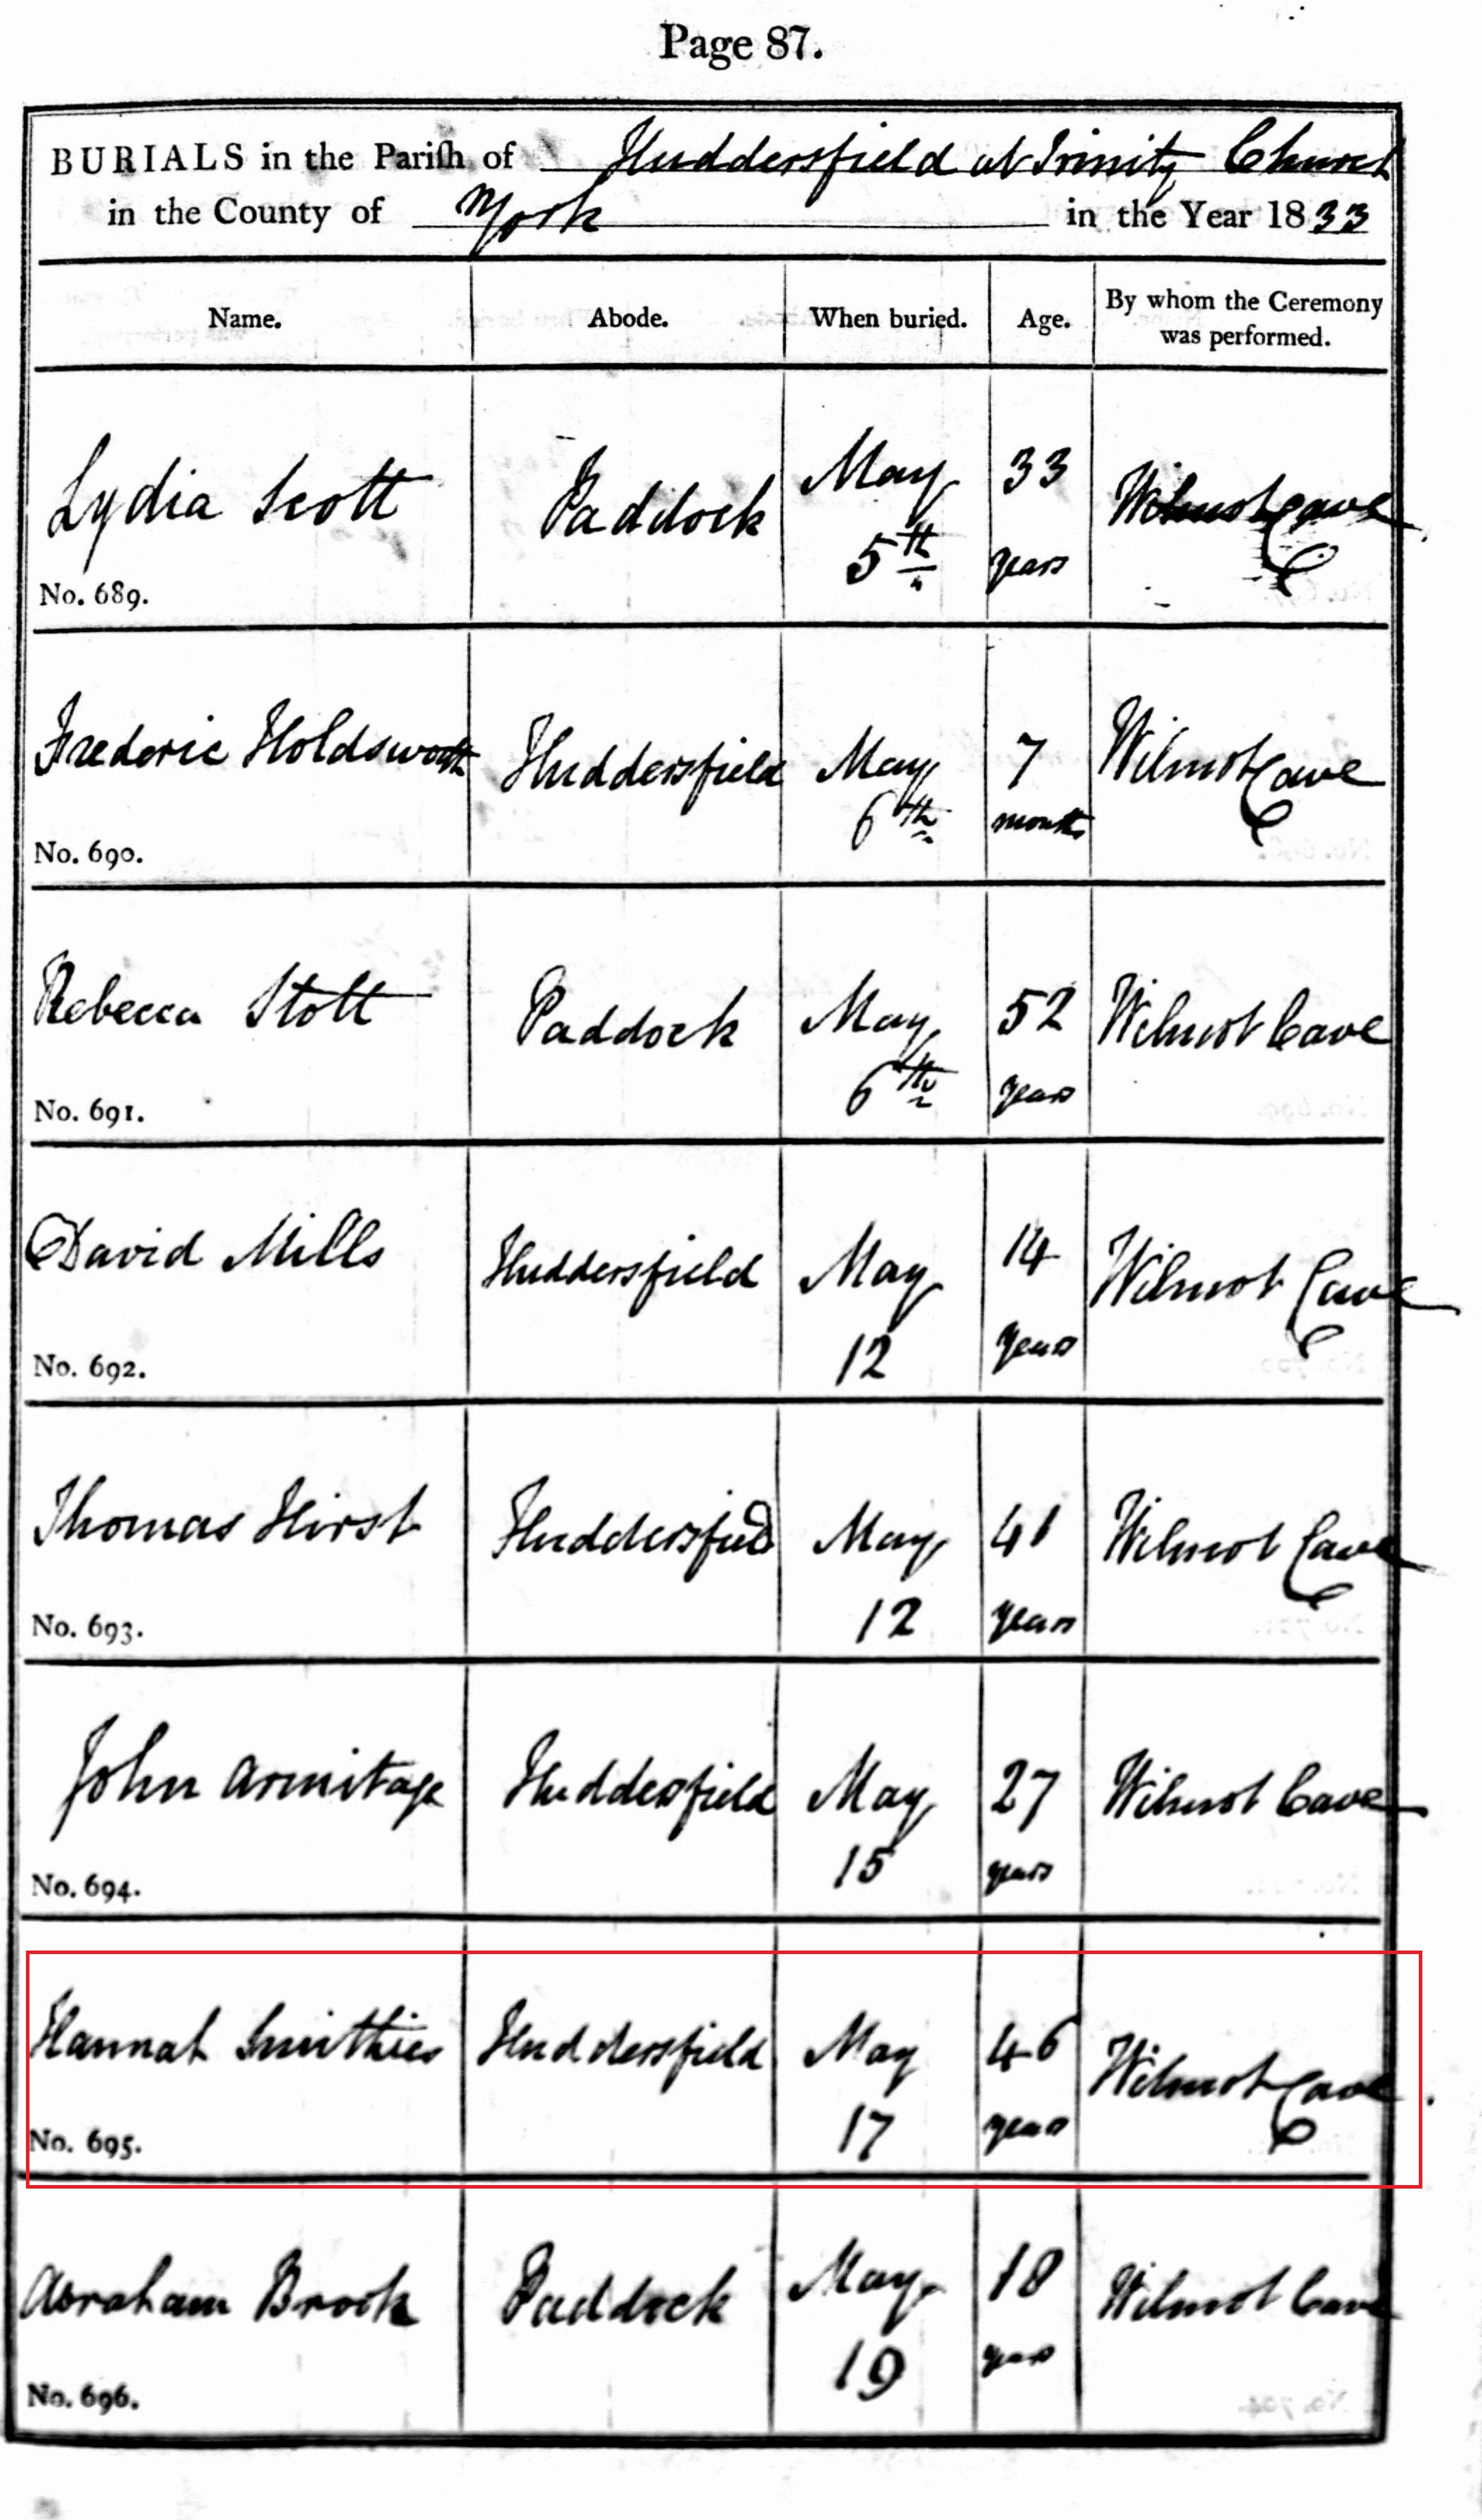 Page 87.
BURIALS in the Parish of Huddersfield at Trinity Church
in the County of York in the Year 1833
Name. Abode. When buried. Age. By whom the Ceremony was performed.
Lydia Scott Paddock May 5th 33 years Wilmot Cave
No. 689.
Frederic Holdsworth Huddersfield May 6th 7 months Wilmot Cave
No. 690.
Rebecca Stott Paddock May 6th 52 years Wilmot Cave
No. 691.
David Mills Huddersfield May 12 14 years Wilmot Cave
No. 692.
Thomas Hirst Huddersfield May 12 41 years Wilmot Cave
No. 693.
John Armitage Huddersfield May 15 27 years Wilmot Cave
No. 694.
Hannah Smithies Huddersfield May 17 46 years Wilmot Cave
No. 695.
Abraham Brook Paddock May 19 18 years Wilmot Cave
No. 696.